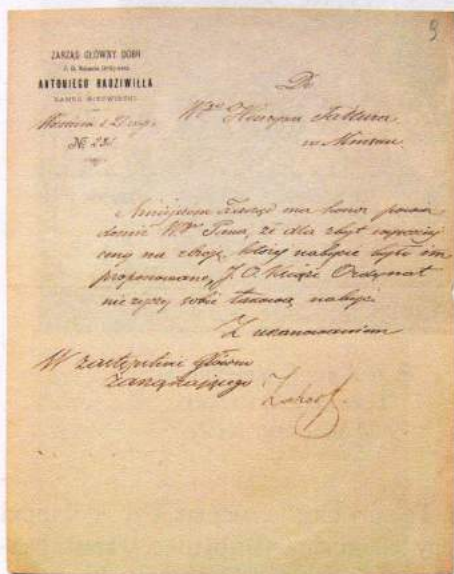 9
ZARZĄD GŁÓWNY DÓBR
ANTONIEGO RADZIWIŁŁA
ZAMEK NIEŚWIESKI
Do
Wgo Henryka
w Mińsku
№
Niniejszem Zarząd ma honor powia
domić Wgo Pana, że dla zbyt wysokiej
ceny na zbroję, której nabycie było im
proponowane, J. O. Książe Ordynat
nie życzy sobie takową nabyć.
Z uszanowaniem
W zastępstwie Główno
zarządzającego